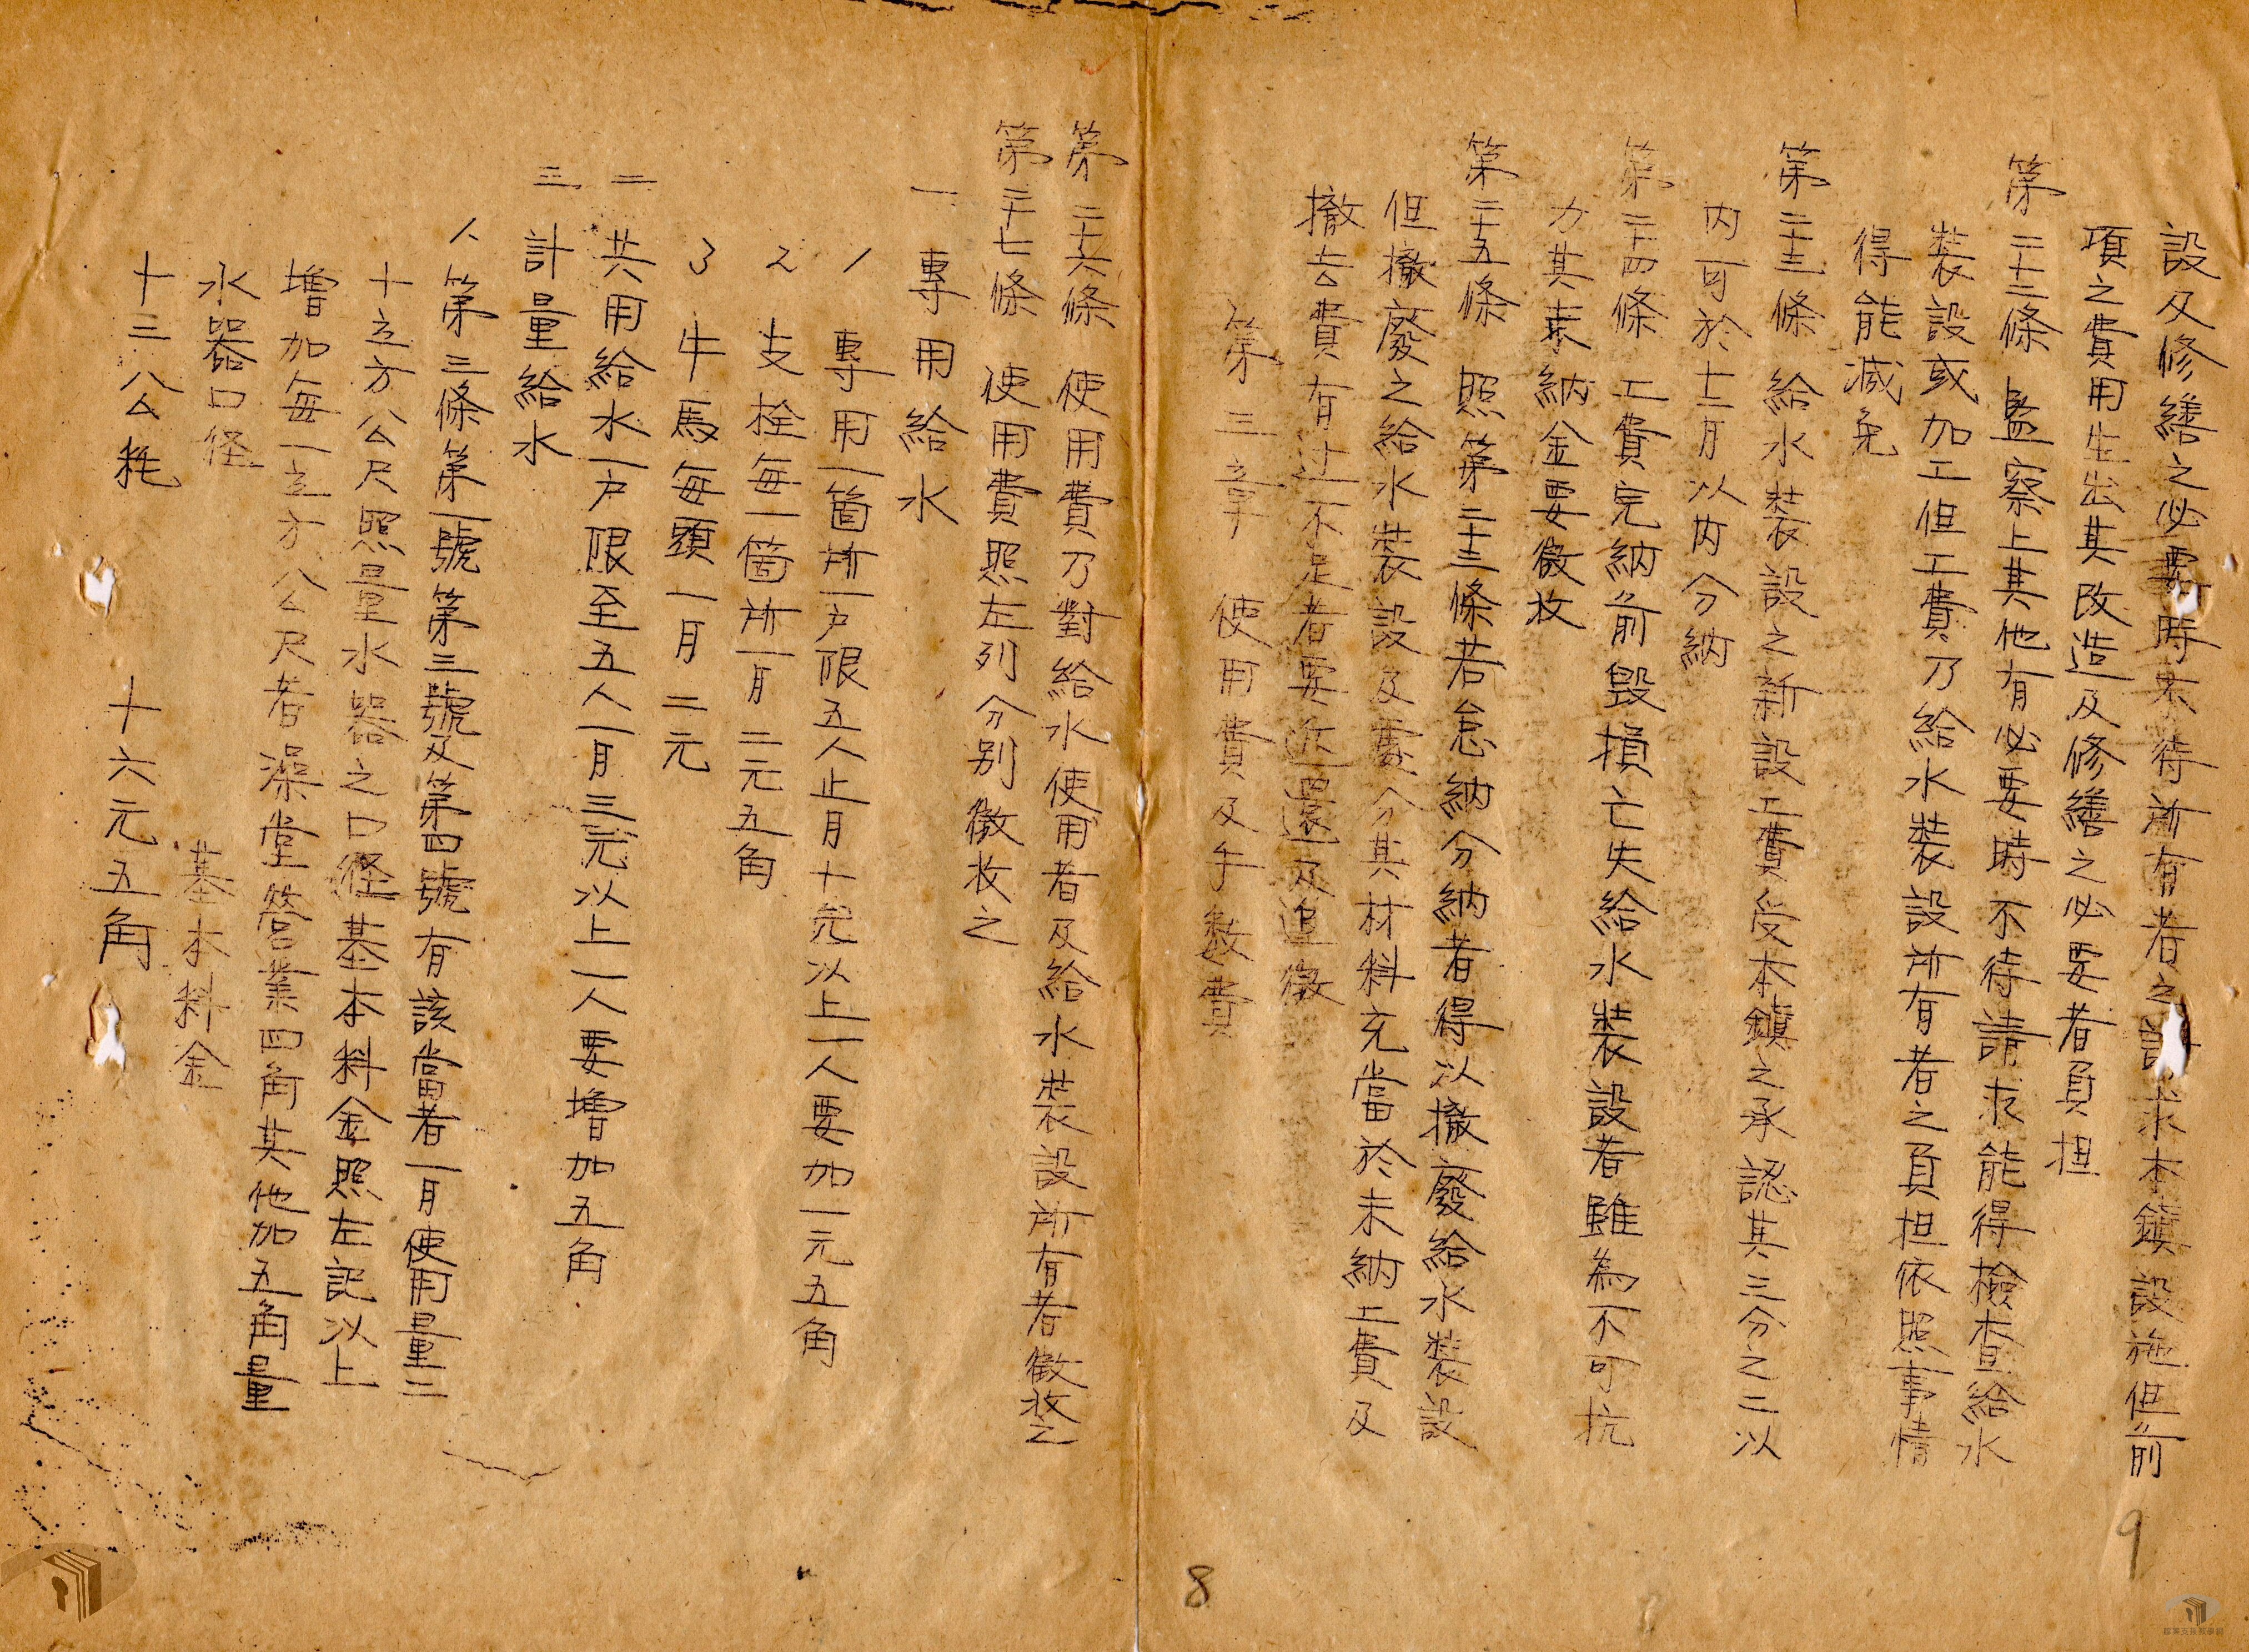 設及修繕之必要時不待所有者之請求本鎮設施但前
項之費用生出其改造及修繕之必要者負担
第二十二條 監察上其他有必要時不待請求能得檢查給水
裝設或加工但工費乃給水裝設所有者之負担依照事情
得能減免
第二十三條 給水裝設之新設工費受本鎮之承認其三分之二以
內可於十二月以內分納
第二十四條 工費完納前毀損亡失給水裝設者雖為不可抗
力其未納金要徵收
第二十五條 照第二十三條若怠納分納者得以撤廢給水裝設
但撤廢之給水裝設及要分其材料充當於未納工費及
撤去費有過不足者要返還及追徵
第三章 使用費及手數費
第二十六條 使用費乃對給水使用者及給水裝設所有者徵收之
第二十七條 使用費照左列分別徵收之
一 專用給水
1 專用一箇所一戶限五人止月十元以上一人要加一元五角
2 支栓每一箇所一月二元五角
3 牛馬每頭一月二元
二 共用給水一戶限至五人一月三元以上一人要增加五角
三 計量給水
1 第三條第一號第三號及第四號有該當者一月使用量二
十立方公尺照量水器之口徑基本料金照左記以上
增加每一立方公尺者澡堂營業四角其他加五角量
水器口徑 基本料金
十三公粍 十六元五角
8
9